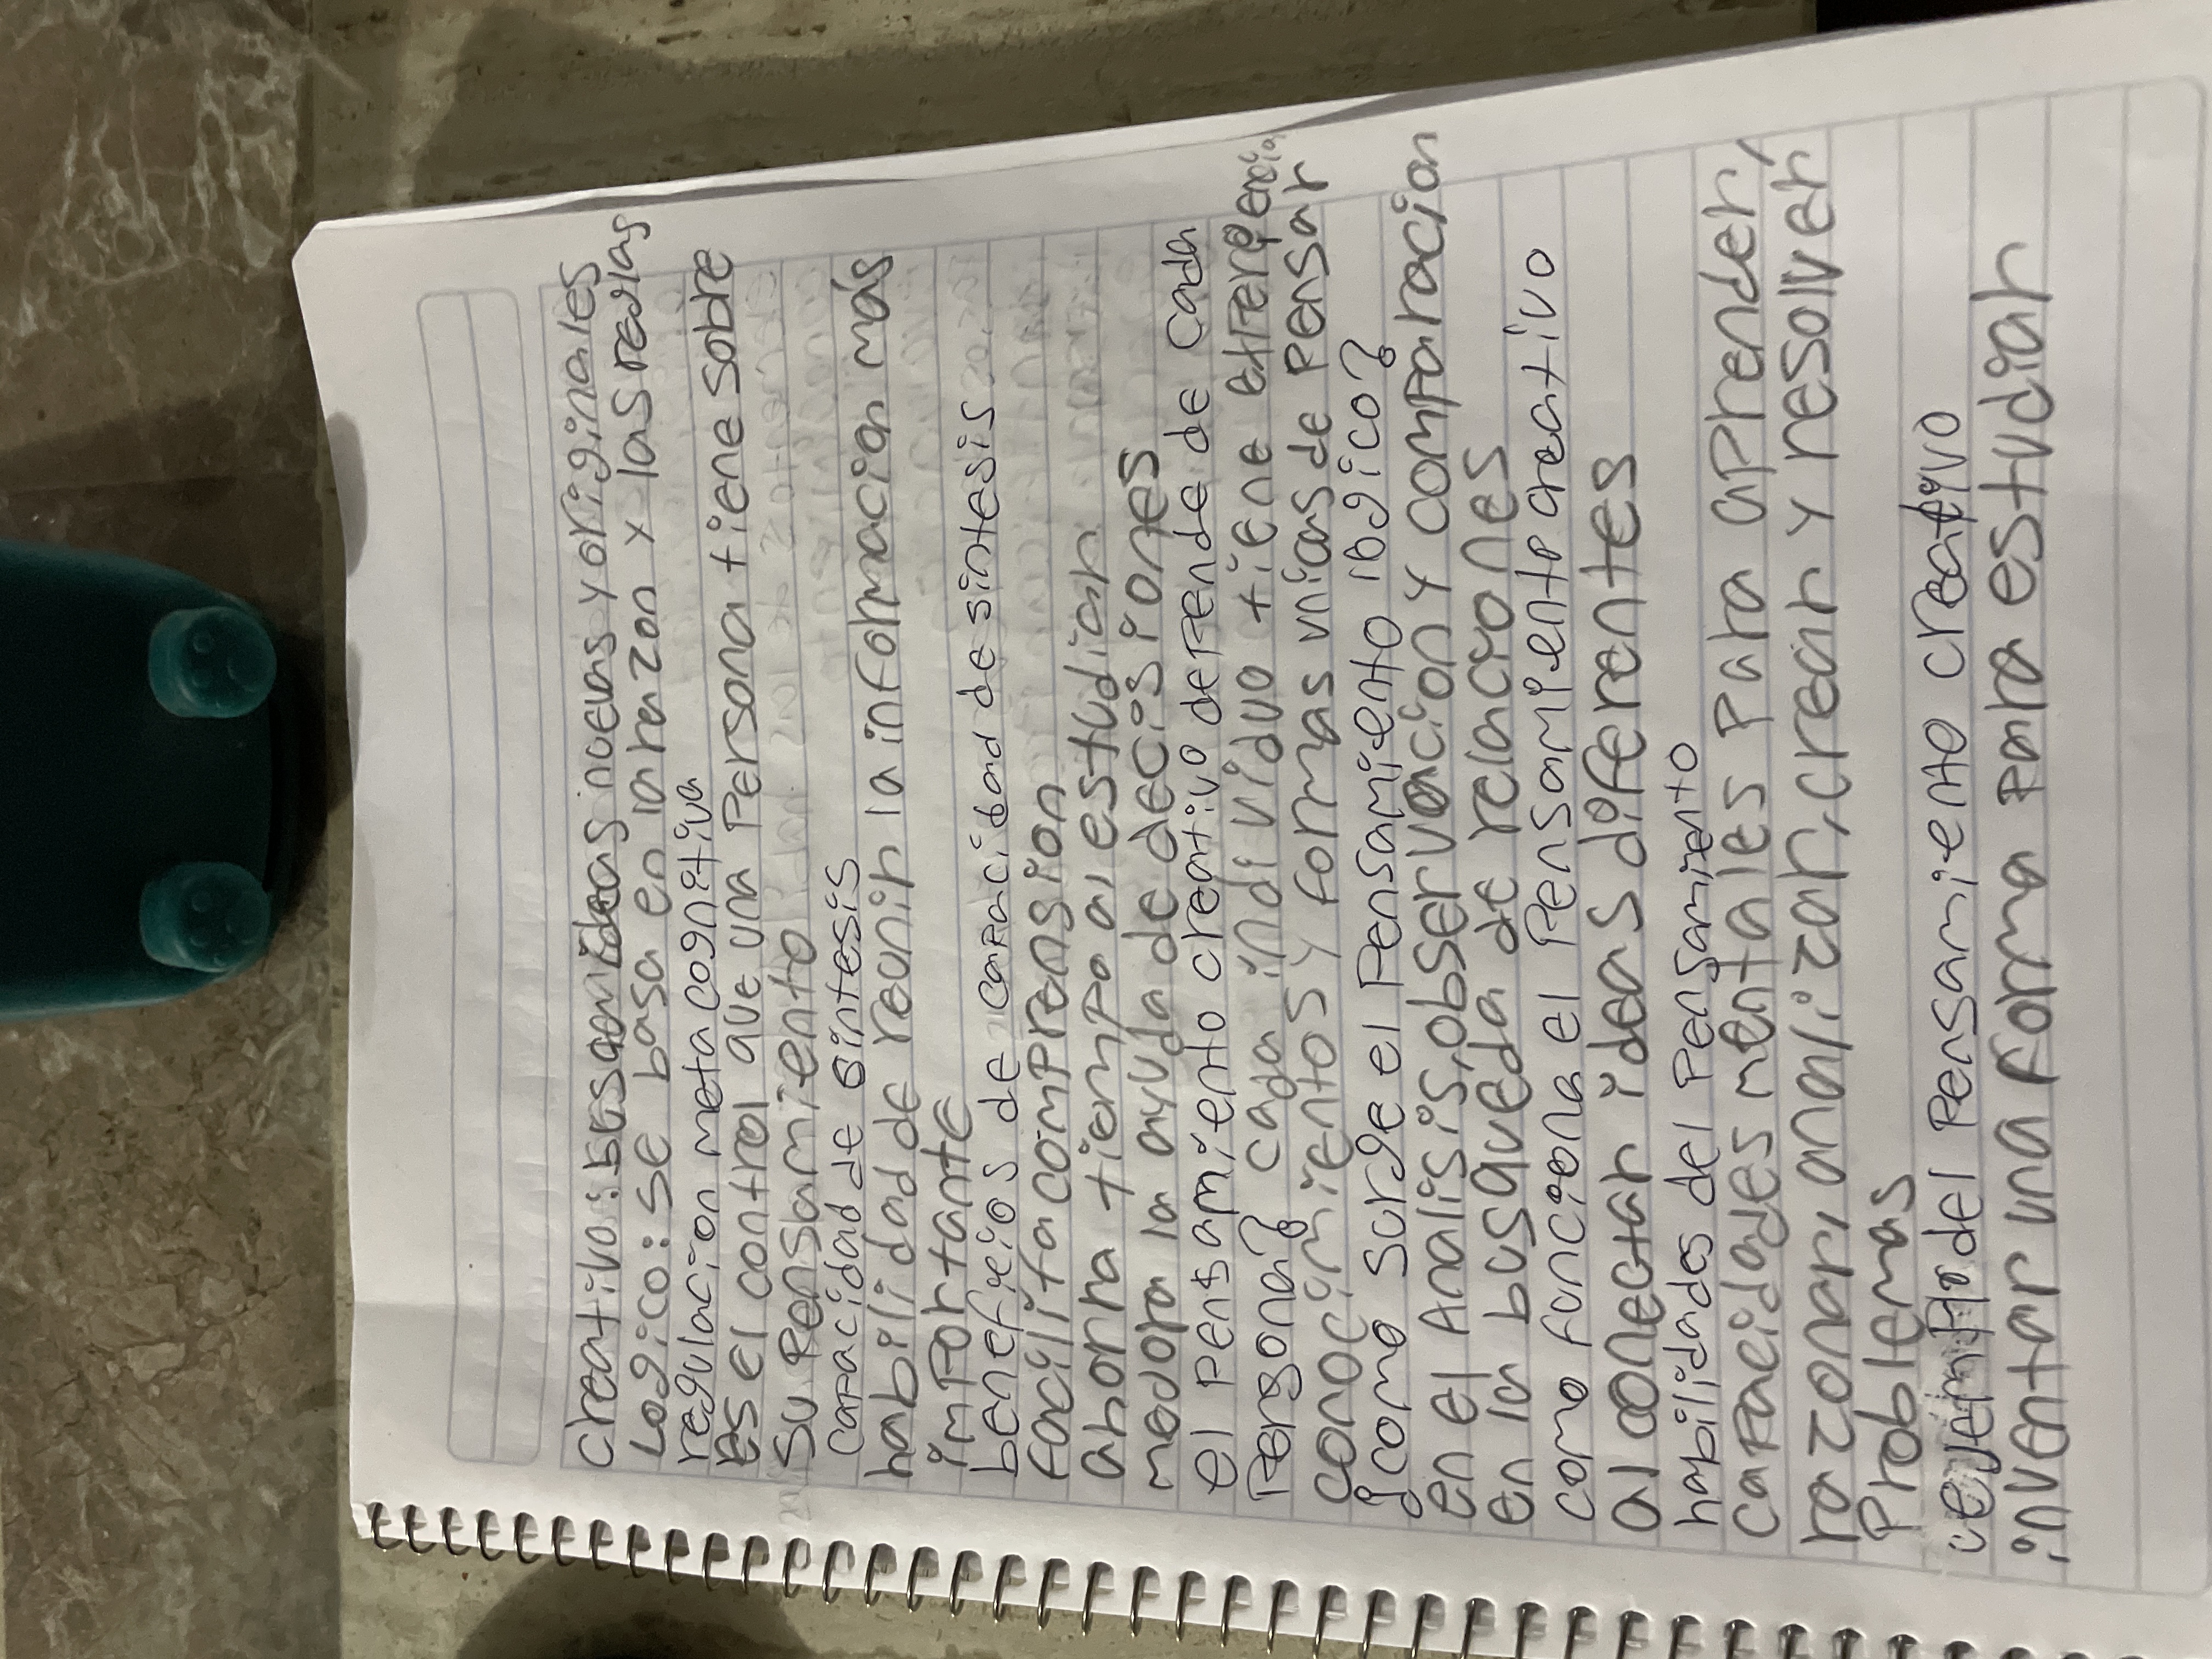 creativo: ideas nuevas y originales
Logico: se basa en la razon y las reglas
regulacion metacognitiva
es el control que una Persona tiene sobre
su Pensamiento
capacidad de sintesis
habilidad de reunir la informacion más
importante
beneficios de capacidad de sintesis
facilita comprension
ahorra tiempo al estudiar
mejora la ayuda de decisiones
el pensamiento creativo depende de cada
Persona? cada individuo tiene
conocimientos y formas unicas de pensar
¿como surge el Pensamiento lógico?
en el Analisis, observacion y comparacion
en la busqueda de relaciones
como funciona el Pensamiento creativo
al conectar ideas diferentes
habilidades del Pensamiento
capacidades mentales Para aprender,
razonar, analizar, crear y resolver
Problemas
ejemplo del Pensamiento creativo
inventar una forma para estudiar